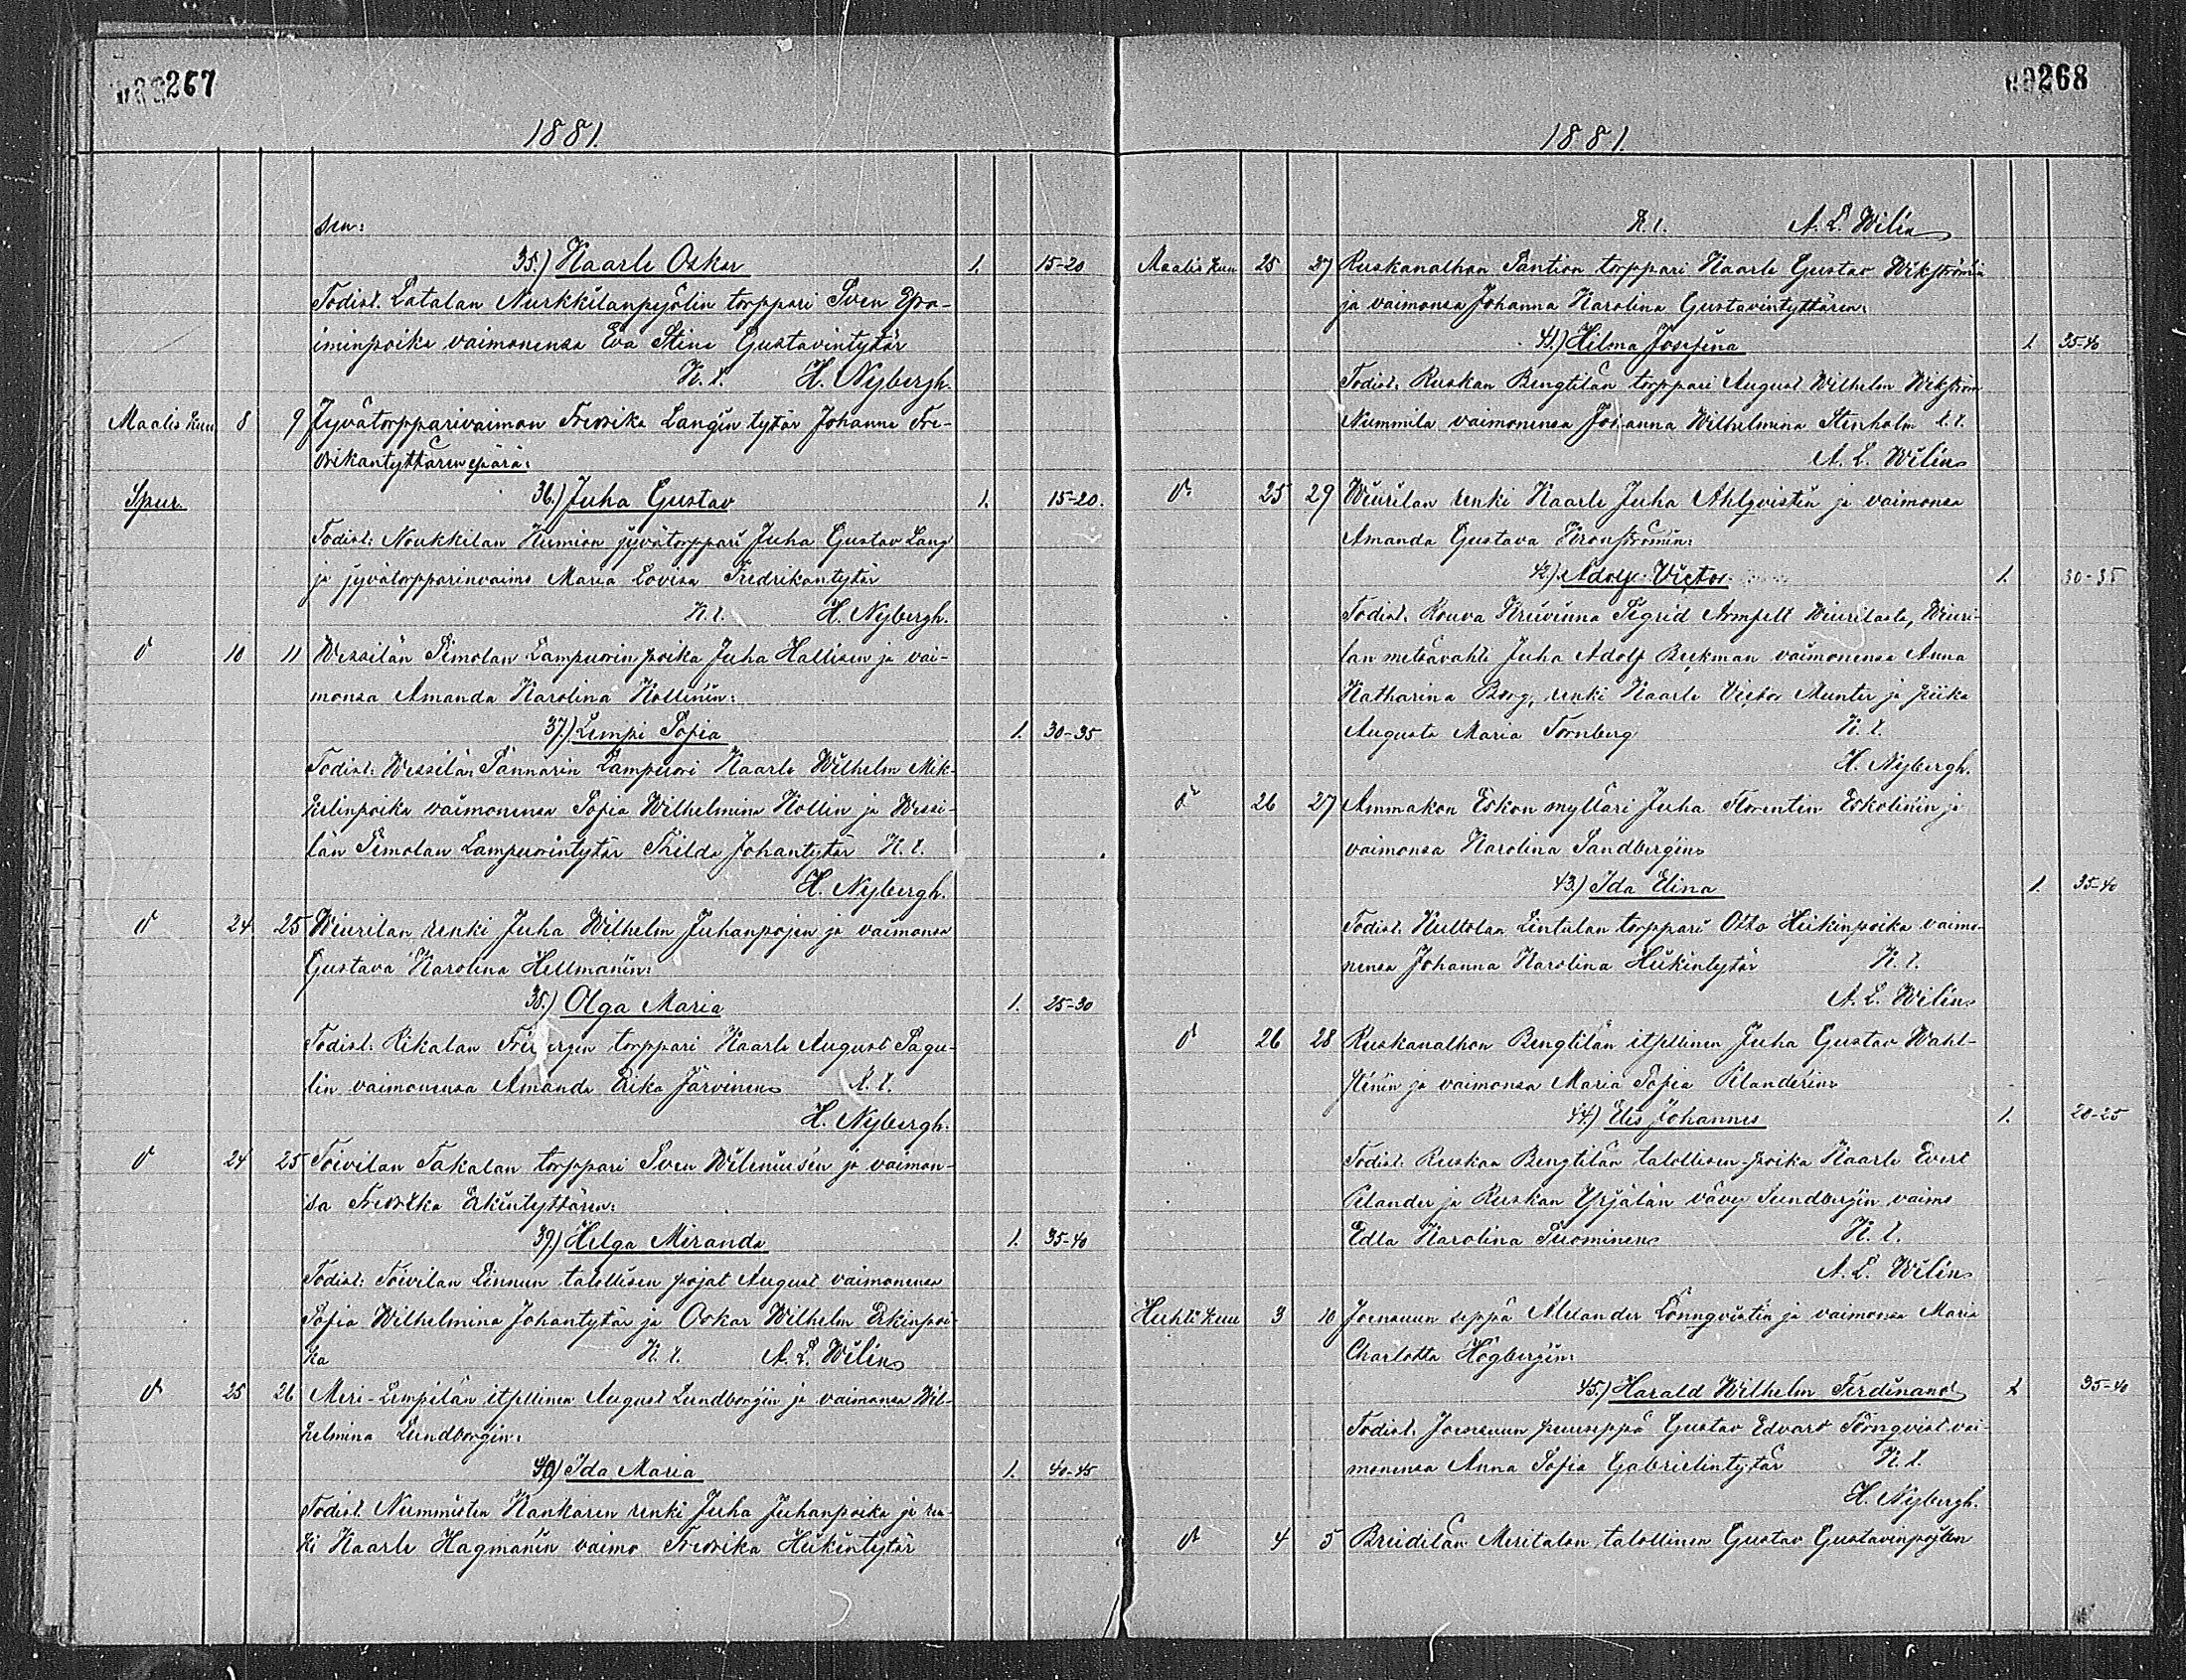 267
1881.
sen:
35.) Kaarle Oskar 1. 15-20
Todist. Latalan Nurkkilanpyölin torppari Sven
iminpoika vaimonensa Eva Stina Gustavintytär
K. t. H. Nybergh.
Maalis kuu 8 9 Jyvätorpparivaimon Fredrika Langin tytär Johanna Fre-
drikantyttären epärä:
Spur. 36.) Juha Gustav 1. 15-20.
Todist: Noukkilan jyvätorppari Juha Gustav Lang
ja jyvätorpparinvaimo Maria Lovisa Fredrikantytär
K. t. H. Nybergh.
d 10 11 Wessilän Simolan Lampuorin poika Juha Hallisen ja vai-
monsa Amanda Karolina Kollinin:
37.) Lempi Sofia 1. 30-35
Todist: Wessilän Sannarin Lampuori Kaarlo Wilhelm Mik-
kelinpoika vaimonensa Sofia Wilhelmina Kollin ja Wessi-
län Simolan Lampuorintytär Thilda Johantytär K. t.
H. Nybergh.
d 24 25 Wiurilan renki Juha Wilhelm Juhanpojan ja vaimonsa
Gustava Karolina Hellmanin:
38.) Olga Maria 1. 25-30
Todist: Rikalan torppari Kaarle August Sagu-
lin vaimonensa Amanda Erika Järvinen K. t.
H. Nybergh.
d 24 25 Toivilan Takalan torppari Sven Wileniusen ja vaimon-
sa Fredrika Erkintyttären:
39.) Helga Miranda 1. 35-40
Todist: Toivilan Linnun talollisen pojat August vaimonensa
Sofia Wilhelmina Johantytär ja Oskar Wilhelm Erkinpoi-
ka K. t. A. L. Wilén
d 25 26 Meri-Lempilän itsellinen August Lundborgin ja vaimonsa Wil-
helmina Lundborgin:
40.) Ida Maria 1. 40-45
Todist. Nummisten Kankaren renki Juha Juhanpoika ja ren-
ki Kaarle Hagmanin vaimo Fredrika Heikintytär
268
1881.
K. t. A. L. Wilén
Maalis kuu 25 27 Ruskanalhon Santion torppari Kaarle Gustav Wikströmin
ja vaimonsa Johanna Karolina Gustavintyttären:
41.) Hilma Josefina 1. 35-40
Todist: Ruskan Bengtilän torppari August Wilhelm Wikström
Nummila vaimonensa Johanna Wilhelmina Stenholm K. t.
A. L. Wilén
d: 25 29 Wiurilan renki Kaarle Juha Ahlqvistin ja vaimonsa
Amanda Gustava Kronströmin:
42.) Adolf Victor 1. 30-35
Todist. Rouva Kreivinna Sigrid Armfelt Wiurilasta, Wiuri-
lan metsävahti Juha Adolf Beckman vaimonensa Anna
Katharina Borg, renki Kaarle Victor Munter ja piika
Augusta Maria Törnberg K. t.
H. Nybergh.
d: 26 27 Ammakon Eskon mylläri Juha Florentin Eskolinin ja
vaimonsa Karolina Sandbergin
43.) Ida Elina 1. 35-40
Todist. Kultolan Lintulan torppari Otto Heikinpoika vaimo-
nensa Johanna Karolina Heikintytär K. t.
A. L. Wilén
d 26 28 Ruskanalhon Bengtilän itsellinen Juha Gustav Wahl-
sténin ja vaimonsa Maria Sofia Pelanderin
44.) Elis Johannes 1. 20-25
Todist. Ruskan Bengtilän talollisen poika Kaarle Evert
Pelander ja Ruskan Yrjälän vävy Sundbergin vaimo
Edla Karolina Suominen K. t.
A. L. Wilén
Huhti kuu 3 10 Joensuun seppä Alexander Lönnqvistin ja vaimonsa Maria
Charlotta Högbergin:
45.) Harald Wilhelm Ferdinand 1. 35-40
Todist. Joensuun puuseppä Gustav Edvard Törnqvist vai-
monensa Anna Sofia Gabrielintytär K. t.
H. Nybergh.
d 4 5 Briidilän Meritalon talollinen Gustav Gustavinpojan